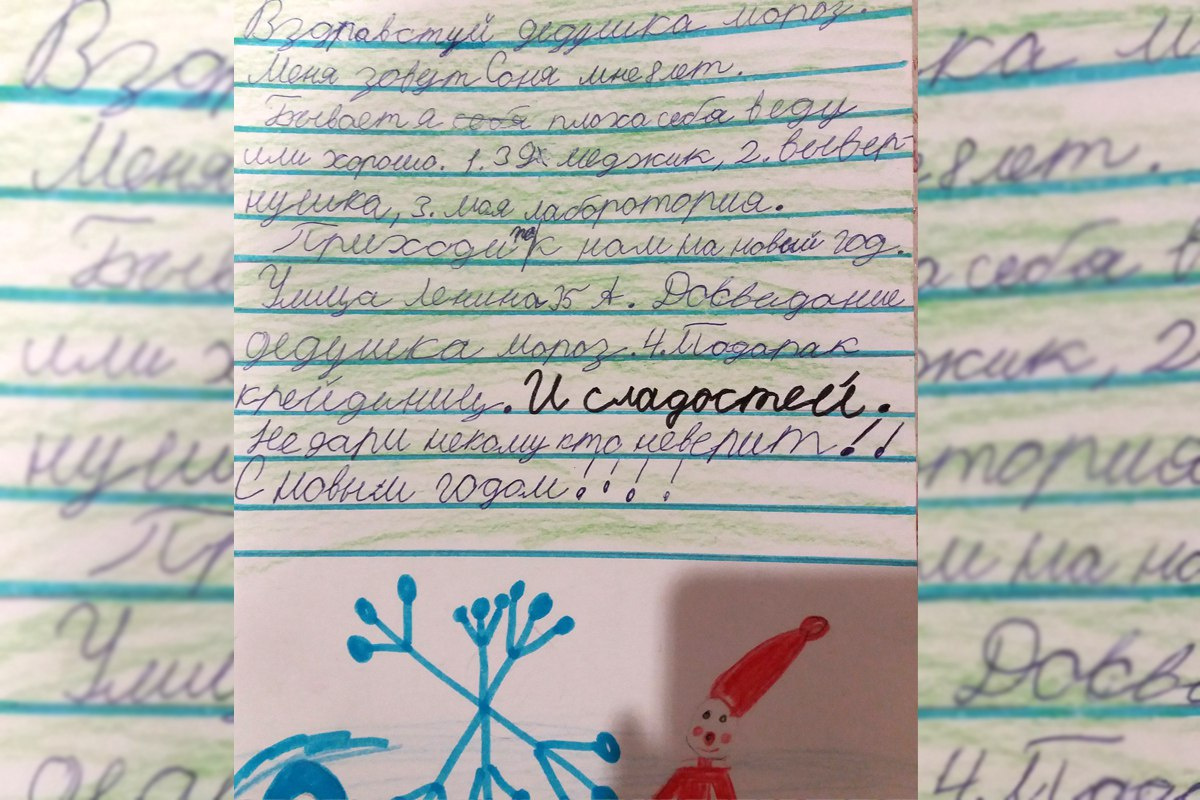 Вздравстуй дедушка мороз.
Меня зовут Соня мне 8 лет.
Бывает я себя плоха себа веду
или хорошо. 1. 3д меджик, 2. вывер-
нушка, 3. моя лабротория.
Приходи к нам на новый год.
Улица Ленина 35 А. Досведание
дедушка мороз. 4. Подарак
крейдиниц. И сладостей.
Не дари некому кто неверит!!
С новым годом!!!!